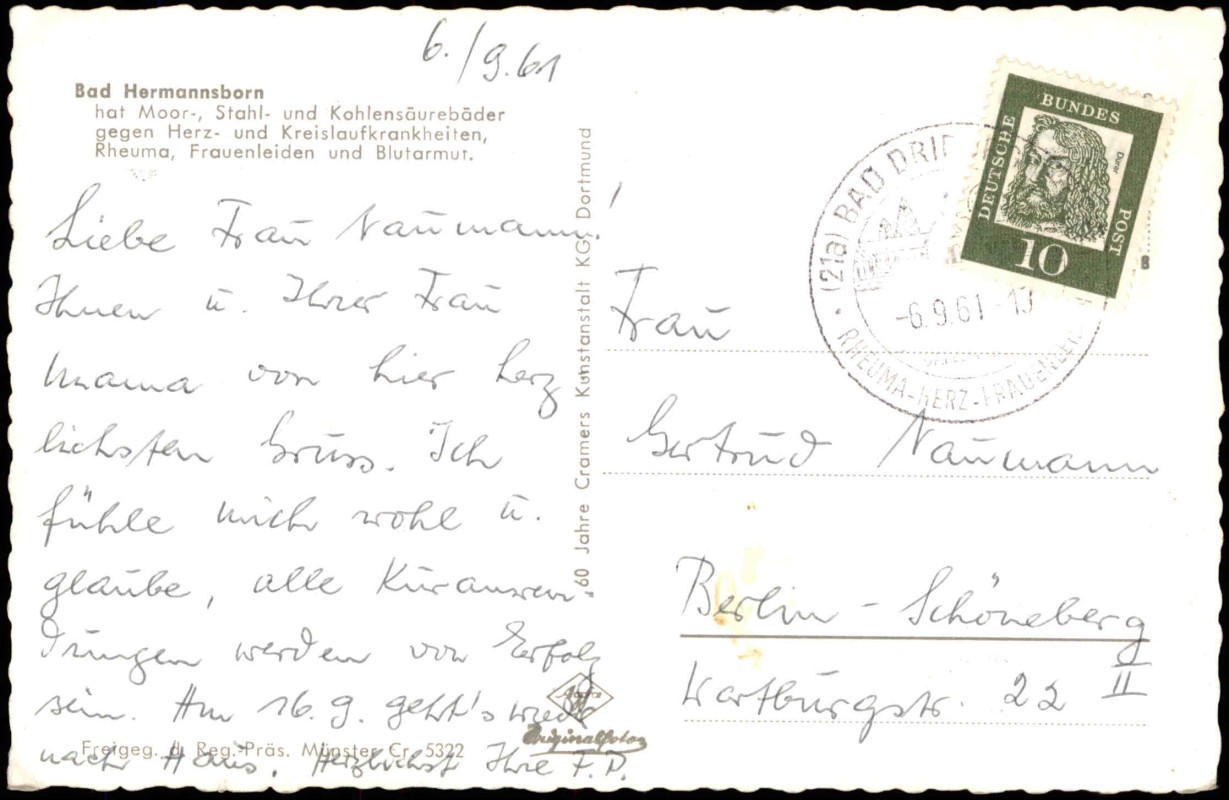 6./9.61
Bad Hermannsborn
hat Moor-, Stahl- und Kohlensäurebäder
gegen Herz- und Kreislaufkrankheiten,
Rheuma, Frauenleiden und Blutarmut.
Liebe Frau Naumann!
Ihnen u. Ihrer Frau
Mama von hier herz
lichsten Gruss. Ich
fühle mich wohl u.
glaube, alle Kuranwen-
dungen werden von Erfolg
sein. Am 16.9. geht's wieder
nach Haus. Herzlichst Ihre F.P.
Freigeg. d. Reg.-Präs. Münster Cr. 5322
60 Jahre Cramers Kunstanstalt KG, Dortmund
Originalfotos
(21a) BAD DRI
-6.9.61-
RHEUMA-HERZ-FRAUENLEI
DEUTSCHE
BUNDES
POST
Dürer
10
B
Frau
Gertrud Naumann
Berlin-Schöneberg
Wartburgstr. 22 II